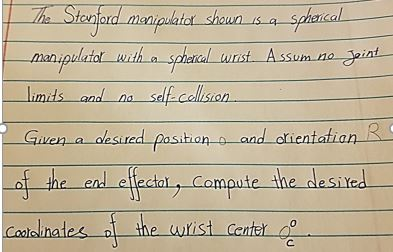 The Stanford manipulator shown is a spherical
manipulator with a spherical wrist. Assum no Joint
limits and no self-collision.
Given a desired position o and orientation R
of the end effector, Compute the desired
coordinates of the wrist center O_c^o.